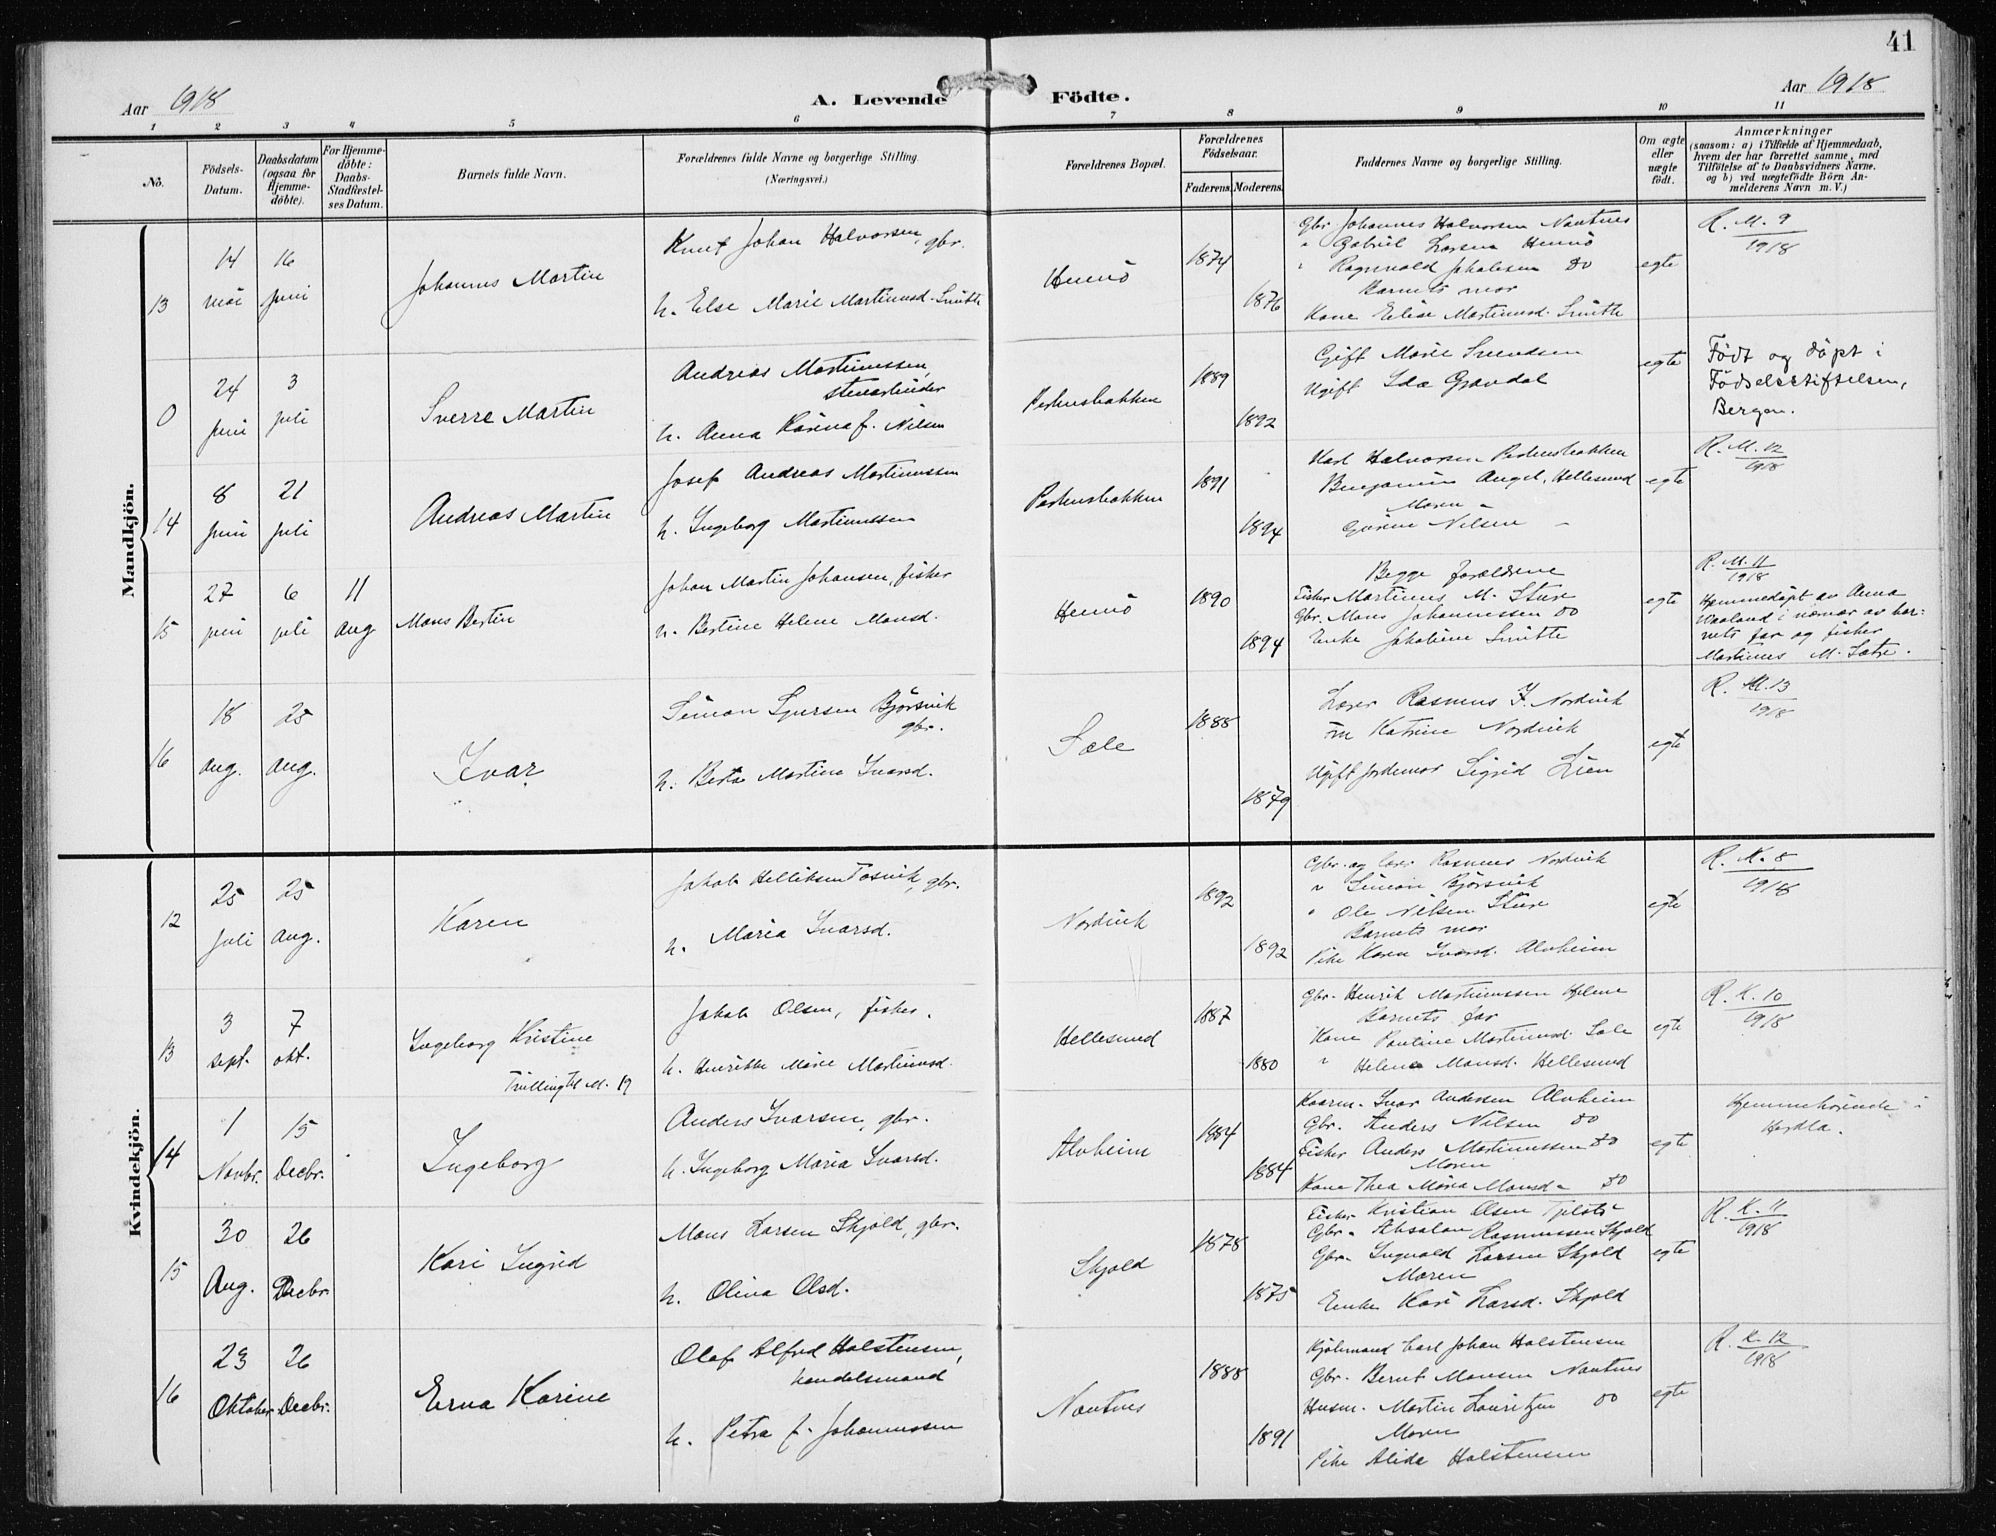 41
Aar 1918
A. Levende Födte.
Aar 1918
1 2 3 4 5 6 7 8 9 10 11
No.
Födsels-Datum.
Daabsdatum (ogsaa for Hjemme-döbte).
For Hjemme-döbte: Daabs-Stadfæstel-ses Datum.
Barnets fulde Navn.
Forældrenes fulde Navne og borgerlige Stilling.
(Næringsvei.)
Forældrenes Bopæl.
Forældrenes Födselsaar.
Faderens. Moderens.
Faddernes Navne og borgerlige Stilling.
Om ægte eller uægte födt.
Anmærkninger
(saasom: a) i Tilfælde af Hjemmedaab, hvem der har forrettet samme, med Tilföielse af to Daabsvidners Navne. og b) ved uægtefödte Börn An-melderens Navn m. V.)
Mandkjön.
13
14 mai
16 juni
Johannes Martin
Knut Johan Halvorsen, gbr.
h. Else Marie Martinusd. Smitt
Hennö
1874
1876
Gbr. Johannes Halvorsen Nautnes
" Gabriel Larsen Hennö
" Ragnvald Jakobsen do
Barnets mor
Kone Elise Martinusd. Smitt
egte
R. M. 9
1918
0
24 juni
3 juli
Sverre Martin
Andreas Martinussen,
stenarbeider
h. Anna Karina f. Nilsen
1889
1892
Gift Marie Svendsen
Ugift Ida Gravdal
egte
Födt og döpt i
Födselsstiftelsen,
Bergen.
14
8 juni
21 juli
Andreas Martin
Josef Andreas Martinussen
h. Ingeborg Martinussen
1891
1894
Karl Halvorsen
Benjamin Angel, Hellesund
Moren
Nilsen
egte
R. M. 12
1918
15
27 juni
6 juli
11 aug
Mons Bertin
Johan Martin Johansen, fisker
h. Bertine Helene Monsd.
Hennö
1890
1894
Begge forældrene
Fisker Martinus M. Sture
Gbr. Mons Johannessen do
Enke Jakobine Smitt
egte
R. M. 11
1918
Hjemmedöpt av Anna
i nærvær av bar-
nets far og fisker
Martinus M.
16
18 aug.
25 aug.
Ivar
Simon Sjursen Björsvik
gbr.
h. Berta Martina Ivarsd.
Sæle
1888
1879
Lærer Rasmus I. Nordvik
Fru Katrine Nordvik
Ugift jordemor Sigrid Lien
egte
R. M. 13
1918
Kvindekjön.
12
25 juli
25 aug.
Karen
Jakob Helliksen Tosvik, gbr.
h. Maria Ivarsd.
Nordvik
1892
1892
Gbr. og lærer Rasmus Nordvik
" Simon Björsvik
" Ole Nilsen Sture
Barnets mor
Pike Karen Ivarsd. Alvheim
egte
R. K. 8
1918
13
3 sept.
7 okt.
Ingeborg Kristine
Tvilling til M. 19
Jakob Olsen, fisker.
h. Henrikke Marie Martinusd.
Hellesund
1887
1880
Gbr. Henrik Martinussen Hjelme
Barnets far
Kone Pauline Martinusd. Sæle
" Helene Monsd. Hellesund
egte
R. K. 10
1918
14
1 Novbr.
15 Decbr.
Ingeborg
Anders Ivarsen, gbr.
h. Ingeborg Maria Ivarsd.
Alvheim
1884
1884
Kaarm. Ivar Andersen Alvheim
Gbr. Anders Nilsen do
Fisker Anders Martinussen do
Moren
Kone Thea Maria Monsd. do
egte
Hjemmehörende i
Herdla.
15
30 Aug.
26 Decbr.
Kari Ingrid
Mons Larsen Skjold, gbr.
h. Oline Olsd.
Skjold
1878
1875
Fisker Kristian Olsen
Gbr. Absalon Rasmussen Skjold
Gbr. Ingvald Larsen Skjold
Moren
Enke Kari Larsd. Skjold
egte
R. K. 11
1918
16
23 Oktober
26 Decbr.
Erna Karine
Olaf Alfred Holstensen,
handelsmand
h. Petra f. Johannessen
Nautnes
1888
1891
Kjöbmand Carl Johan Holstensen
Gbr. Bernt Monsen Nautnes
Husm. Martin Lauritzen do
Moren
Pike Alida Holstensen
egte
R. K. 12
1918